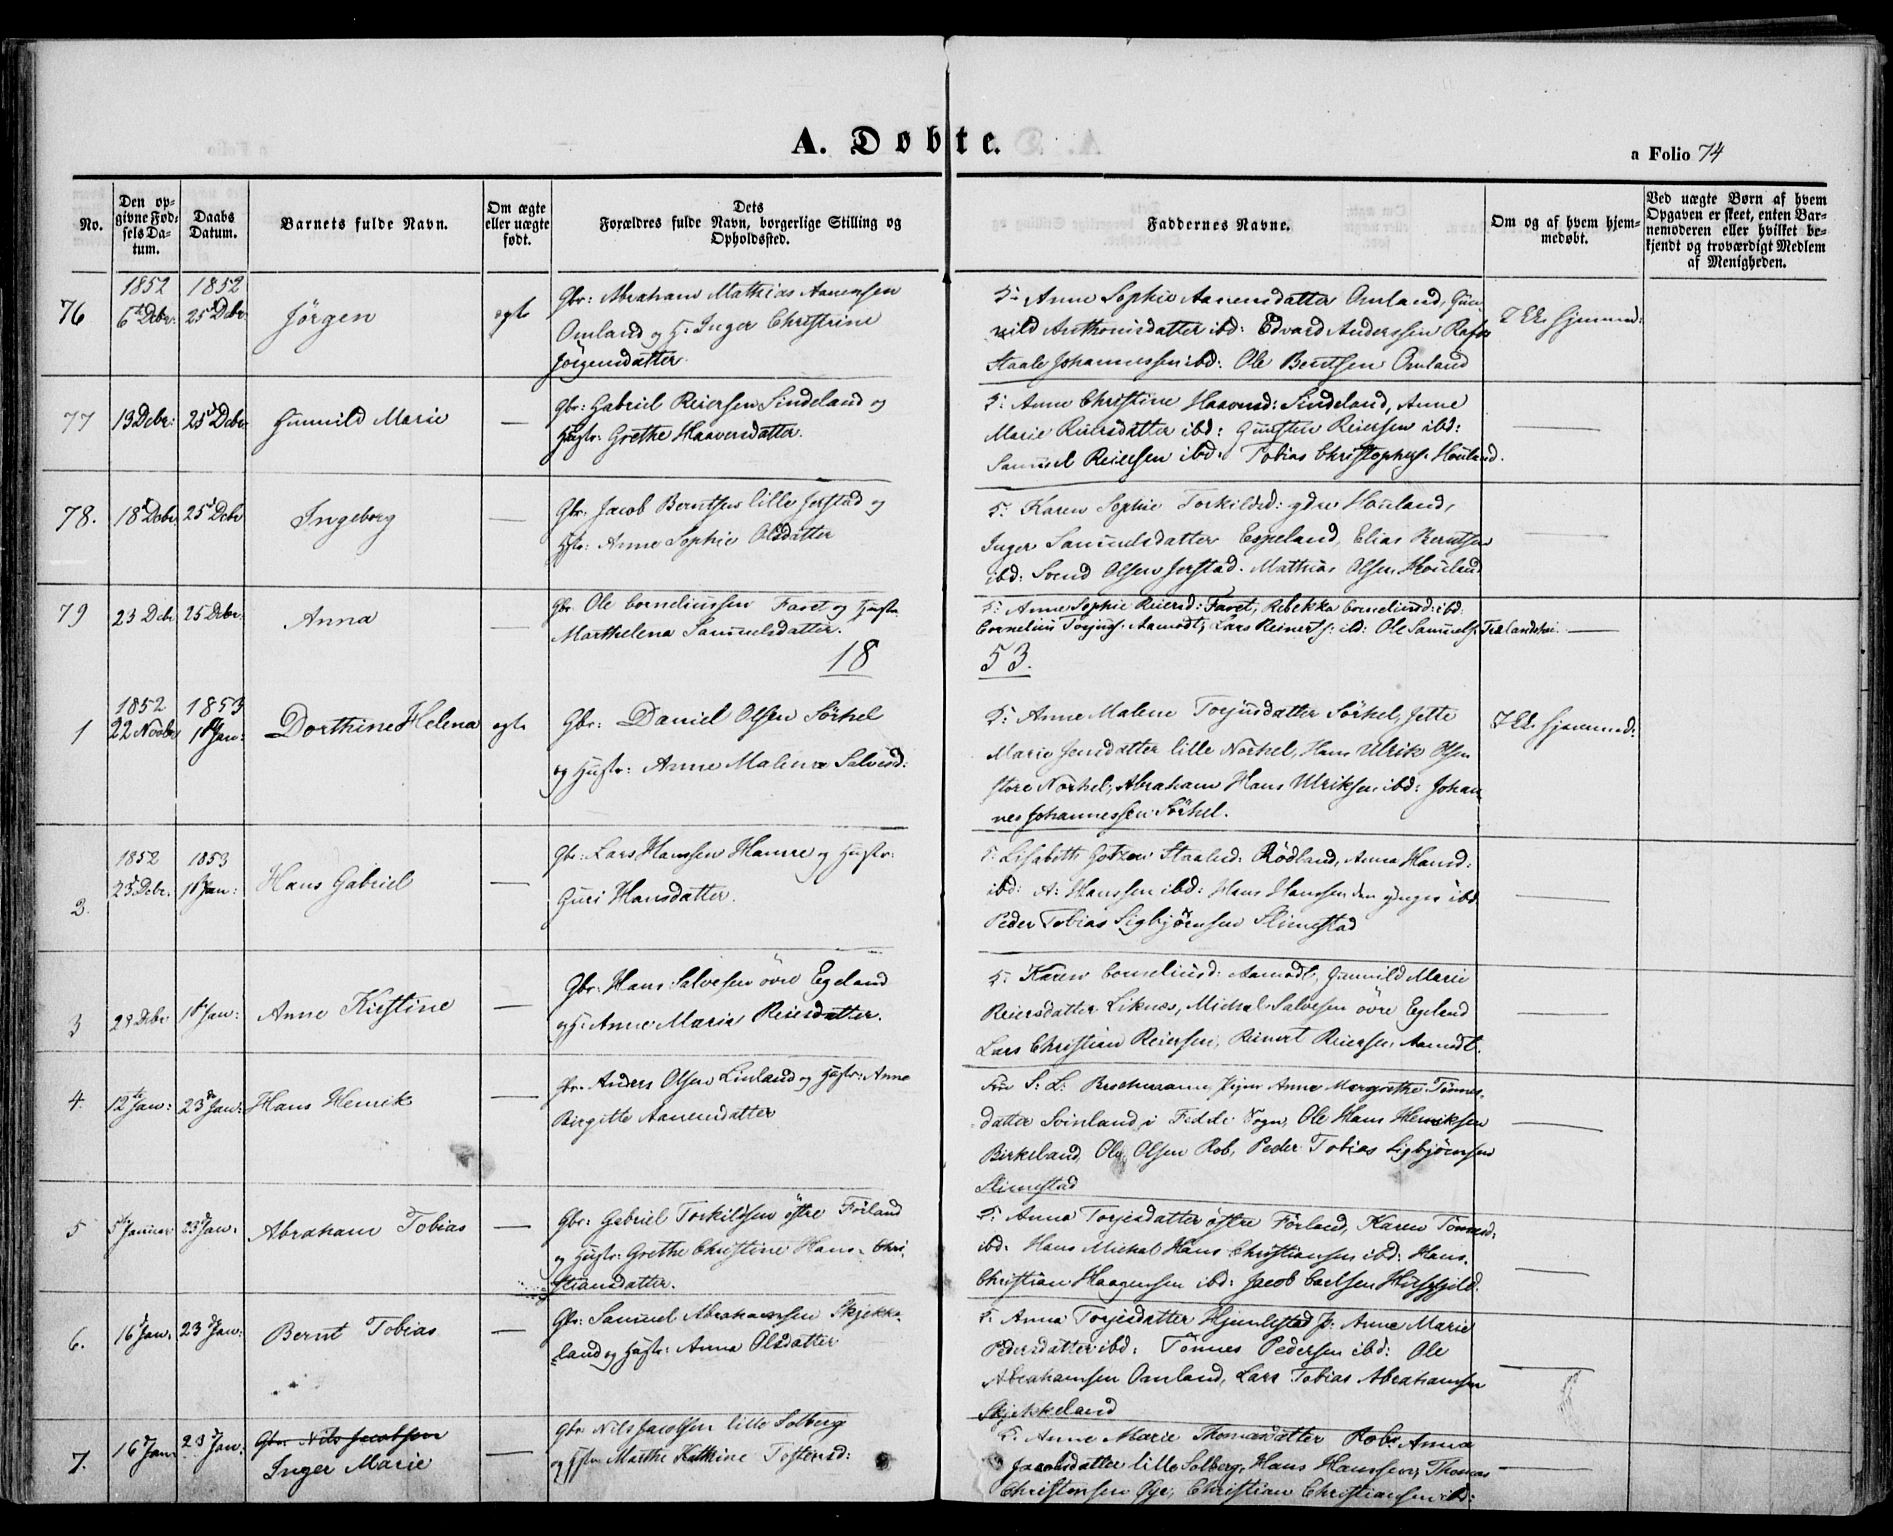 A. Døbte.
a Folio 74
No.
Den op-
givne Fød-
sels Da-
tum.
Daabs
Datum.
Barnets fulde Navn.
Om ægte
eller uægte
født.
Dets
Forældres fulde Navn, borgerlige Stilling og
Opholdssted.
Faddernes Navne.
Om og af hvem hjem-
medøbt.
Ved uægte Børn af hvem
Opgaven er skeet, enten Bar-
nemoderen eller hvilket be-
kjendt og troværdigt Medlem
af Menigheden.
76
1852
6te Debr:
1852
25 Debr
Jörgen
egte
Gbr: Abraham Mathias Aanensen
Omland og H: Inger Christine
Jörgensdatter.
F: Anne Sophie Aanensdatter Omland, Gun-
vild Anthonisdatter ibd: Edvard Anderssen
Staale Johannessen ibd: Ole Berntsen Omland
77
19 Debr:
25 Debr
Gunvild Marie
—
Gbr: Gabriel Reiersen Sindeland og
Hustr: Grethe Haaversdatter.
F: Anne Christine Haaversd: Sindeland, Anne
Marie Reiersdatter ibd: Reiersen ibd:
Samuel Reiersen ibd: Tobias Christophers. Houland.
—
78.
18 Debr
25 Debr
Ingeborg
—
Gbr: Jacob Berntsen lille Jerstad og
Hstr: Anne Sophie Olsdatter
F: Karen Sophie Torkildsd: ydre Houland,
Inger Samuelsdatter Espeland, Elias Berntsen
ibd: Svend Olsen Jerstad. Mathias Olsen Houland
—
79
23 Debr
25 Debr:
Anna
—
Gbr. Ole Corneliussen Faret og Hustr:
Marthelena Samuelsdatter.
F: Anne Sophie Reiersd: Faret, Rebekka Corneliusd: ibd:
Cornelius Torjus. Aamodt, Lars Reinerts: ibd: Ole Samuels. Trælandshei.
—
18
53.
1
1852
22 Novbr
1853
1 Jan:
Dorthine Helena
egte
Gbr: Daniel Olsen Sörhel
og Hustr: Anne Malene Salvesd:
F: Anne Malene Torjusdatter Sörhel, Jette
Marie Jensdatter lille Norhel, Hans Ulrik Olsen
store Norhel, Abraham Hans Ulriksen ibd: Johan-
nes Johannessen Sörhel.
Ikke hjemmed:
2.
1852
25 Debr:
1853
1 Jan:
Hans Gabriel
—
Gbr: Lars Hanssen Hamre og Hustr:
Guri Hansdatter.
F: Lisbeth Staalesd: Rödland, Anna Hansd:
ibd: A: Hanssen ibd: Hans Hanssen den yngre ibd
Peder Tobias Sigbjörnsen Slimestad
—
3
28 Debr
1 Jan:
Anne Kirstine
—
Gbr: Hans Salvesen övre Egeland
og H: Anne Marie Reiersdatter.
F: Karen Corneliusd: Aamodt, Gunvild Marie
Reiersdatter Liknes, Michal Salvesen övre Egeland
Lars Christian Reiersen, Reinert Reiersen Aamodt.
—
4.
12te Jan:
23 Jan:
Hans Henrik
—
Gbr. Anders Olsen Linland og Hustr: Anne
Birgitte Aanensdatter
Fru S: L: Brochmann, Anne Margrethe Tönnes-
datter Svinland i Fedde Sogn, Ole Hans Henriksen
Birkeland, Ole Olsen Rob, Peder Tobias Sigbjörnsen
Slimestad
—
5
5 Januar
23 Jan:
Abraham Tobias
—
Gbr: Gabriel Torkildsen östre Förland
og Hustr: Grethe Christine Hans-Chri-
stiansdatter.
F: Anna Torjesdatter östre Förland, Karen Tönnesd:
ibd: Hans Michal Hans Christiansen ibd: Hans.
Christian Haagensen ibd: Jacob Carlsen
—
6.
16 Jan:
23 Jan:
Bernt Tobias
—
Gbr: Samuel Abrahamsen Skjekke-
land og Hustr: Anna Olsdatter
F: Anna Torjesdatter Anne Marie
Pedersdatter ibd: Tönnes Pedersen ibd: Ole
Abrahamsen Omland, Lars Tobias Abrahamsen
Skjekkeland
—
7.
16 Jan
23 Jan:
Gbr: Nils Jacobsen
Inger Marie
—
Gbr Nils Jacobsen lille Solberg
og Hstr Marthe Kathrine Tostensd:
F: Anne Marie Thomasdatter Rob, Anna
Jacobsdatter lille Solberg, Hans Hanssen, Thomas
Christensen Öye, Christian Christiansen ibd:
—